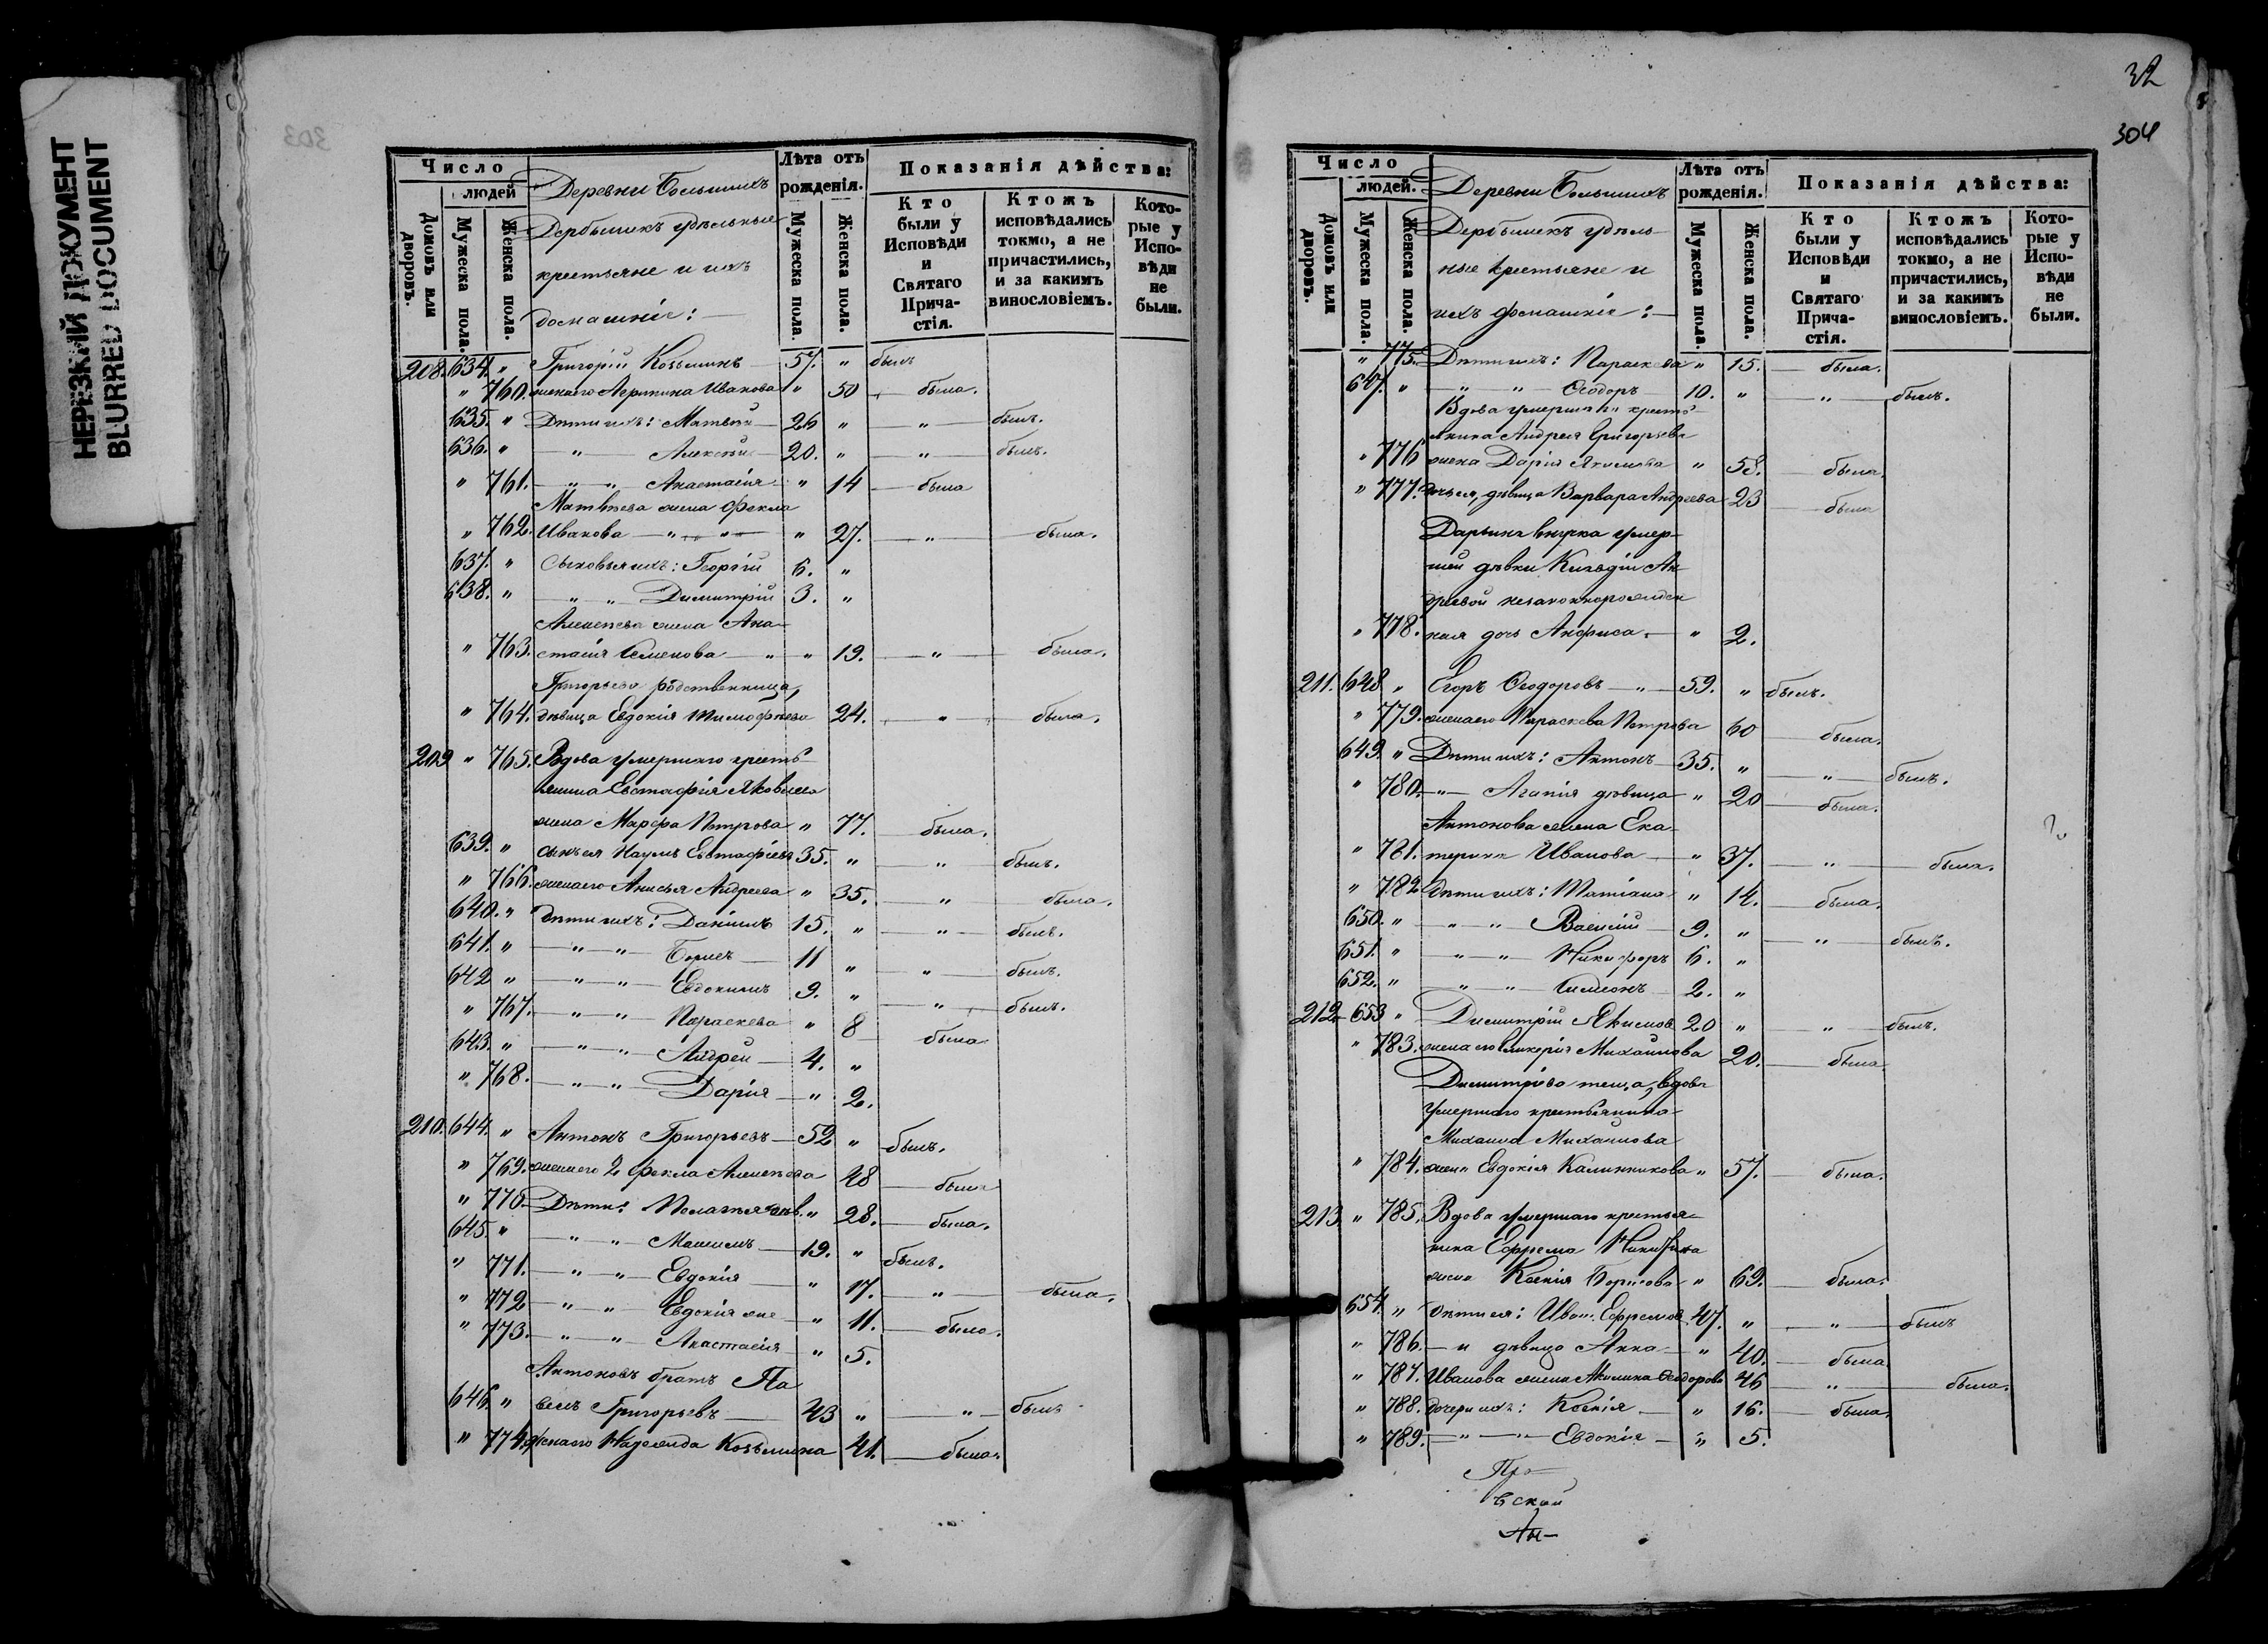 НЕРЕЗКИЙ ДОКУМЕНТ
BLURRED DOCUMENT
303
Число
людей
Домовъ или дворовъ.
Мужеска пола.
Женска пола.
Деревни Большихъ
Дербышекъ удѣльные
крестьяне и ихъ
домашніе:
Лѣта отъ рожденія.
Мужеска пола.
Женска пола.
Показанія дѣйства:
Кто были у Исповѣди и Святаго Причастія.
Ктожъ исповѣдались токмо, а не причастились, и за какимъ винословіемъ.
Которые у Исповѣди не были.
208. 634. " Григорій Козьминъ 57. " былъ
" 760. жена его Агрипина Иванова " 50 была.
635. " Дѣти ихъ: Матвѣй 26 " " былъ.
636. " " Алексѣй 20. " " былъ.
" 761. " " Анастасія " 14 была
Матвѣева жена Фекла
" 762. Иванова " " " 27. " была.
637. " Сыновья ихъ: Георгій 6. "
638. " " " Димитрій 3. "
Алексѣева жена Ана-
" 763. стасія Семенова " " 19. " была.
Григорьева родственница,
" 764. дѣвица Евдокія Тимофѣева 24. " была.
209 " 765. Вдова умершаго кресть-
янина Евстафія Яковлева
жена Марфа Петрова " 77. была.
639. " сынъ ея Наумъ Евстафіевъ 35. " " былъ.
" 766. жена его Анисья Андреева " 35. " была.
640. " дѣти ихъ: Даніилъ 15. " " былъ.
641. " " " Борисъ 11 " " былъ.
642 " " " Евдокимъ 9. " " былъ.
" 767. " " Параскева " 8 была
643. " " " Андрей 4. "
" 768. " " Дарія " 2.
210. 644. " Антонъ Григорьевъ 52 " былъ.
" 769. жена его 2 Фекла Алексѣева 48 была
" 770. Дѣти: Пелагея дѣв. " 28. была.
645. " " " Максимъ 19. " былъ.
" 771. " " Евдокія " 17. " была.
" 772 " " Евдокія же " 11. была.
" 773. " " Анастасія " 5.
Антоновъ братъ Па
646. " велъ Григорьевъ 43 " " былъ
" 774. Жена его Надежда Козьмина 41. была.
32
304
Число
людей.
Домовъ или дворовъ.
Мужеска пола.
Женска пола.
Деревни Большихъ
Дербышекъ удѣль-
ные крестьяне и
ихъ домашніе:
Лѣта отъ рожденія.
Мужеска пола.
Женска пола.
Показанія дѣйства:
Кто были у Исповѣди и Святаго Причастія.
Ктожъ исповѣдались токмо, а не причастились, и за какимъ винословіемъ.
Которые у Исповѣди не были.
" 775. Дѣти ихъ: Параскева " 15. была.
647. " " " Ѳеодоръ 10. " " былъ.
Вдова умершаго кресть-
янина Андрея Григорьева
" 776 жена Дарія Якимова " 58. была.
" 777. дочь ея, дѣвица Варвара Андреева 23 была
Дарьина внучка умер-
шей дѣвки Ан-
дреевой незаконнорожден
" 778. ная дочь Анфиса. " 2.
211. 648 " Егоръ Ѳеодоровъ " 59. " былъ.
" 779. жена его Параскева Петрова 60 была.
649. " Дѣти ихъ: Антонъ 35. " " былъ.
" 780. " Агапія дѣвица " 20 была.
Антонова жена Ека-
" 781. терина Иванова " 37. " была.
" 782. Дѣти ихъ: Татіана " 14. была.
650. " " " Василій 9. " " былъ.
651. " " " Никифоръ 6. "
652. " " " Симеонъ 2. "
212. 653 " Димитрій Якимов 20 " " былъ.
" 783. жена его Гликерія Михайлова 20. была
Димитріева теща, вдова
умершаго крестьянина
Михаила Михайлова
" 784. жена Евдокія Калинникова " 57. была.
213. " 785. Вдова умершаго крестья-
нина Ефрема Никитина
жена Ксенія Борисова " 69. была.
654. " дѣти ея: Иван. Ефремов. 47. " " былъ
" 786. " дѣвица Анна " 40. была
" 787. Иванова жена Акилина Ѳеодорова 46 " была.
" 788. Дочери ихъ: Ксенія " 16. была.
" 789. " " Евдокія " 5.